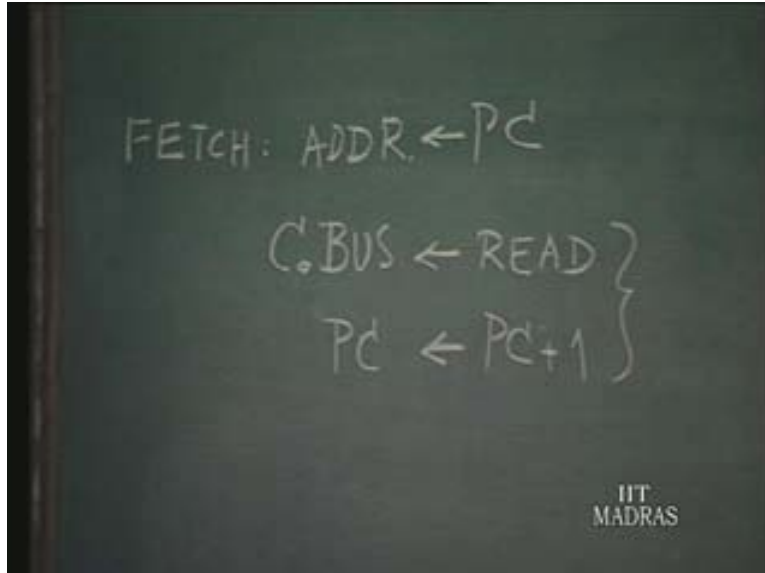 FETCH: ADDR. ← PC
C.BUS ← READ }
PC ← PC+1
IIT
MADRAS